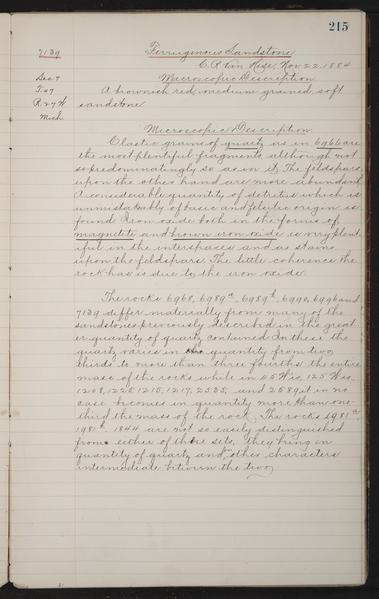 215
7139
Ferruginous Sandstone.
C. R. Van Hise, Nov. 22, 1884
Sec 7
Microscopic Description.
T 47
A brownish red, medium grained, soft
R 27 W
sandstone.
Mich
Microscopic Description.
Clastic grains of quartz as in 6966 are
the most plentiful fragments, although not
so predominatingly so as in it. The feldspars
upon the other hand are more abundant.
A considerable quantity of detritus which is
unmistakably of basic and felsitic origin is
found. Iron oxide both in the forms of
magnetite and brown iron oxide is very plent-
iful in the interspaces and as stains
upon the feldspars. The little coherence the
rock has is due to the iron oxide.
The rocks 6968, 6989a, 6989b, 6990, 6996 and
7139 differ materially from many of the
sandstones previously described in the great
er quantity of quartz contained. In these the
quartz varies in quantity from two
thirds to more than three fourths the entire
mass of the rocks while in 25 Wis, 125 Wis,
1208, 1225, 1215, 1217, 2535, and 2589, it in no
case becomes in quantity more than one-
third the mass of the rock. The rocks 1981a,
1981b, 1844 are not so easily distinguished
from either of these sets, they being in
quantity of quartz and in other characters
intermediate between the two.